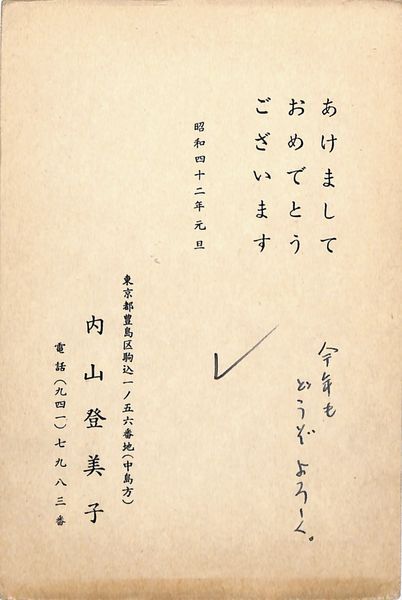 あけまして
おめでとう
ございます
昭和四十二年元旦
今年も
どうぞよろしく。
東京都豊島区駒込一ノ五六番地(中島方)
内山登美子
電話(九四一)七九八三番